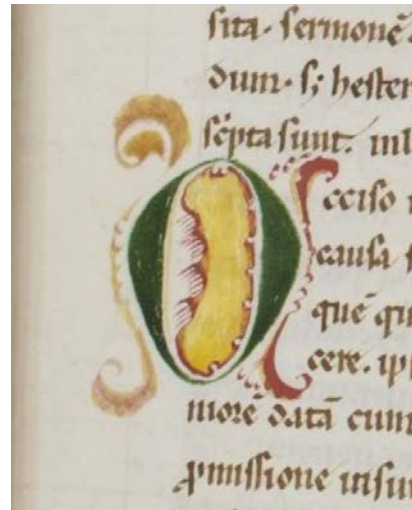 sita. sermonē
dum. s; hester
sc̄pta sunt. in
O
cciso
causa
quē qu
cere. ip
morē datā cum
ꝓmissione insu